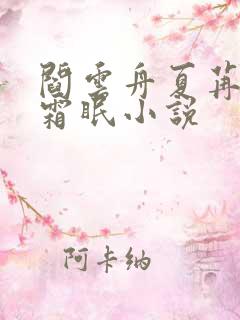 閻雲舟夏苒
霜眠小説
阿卡納